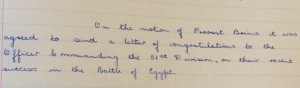 On the motion of Provost Borins it was
agreed to send a letter of congratulations to the
Officer Commanding the 51st Division, on their recent
success in the Battle of Egypt.